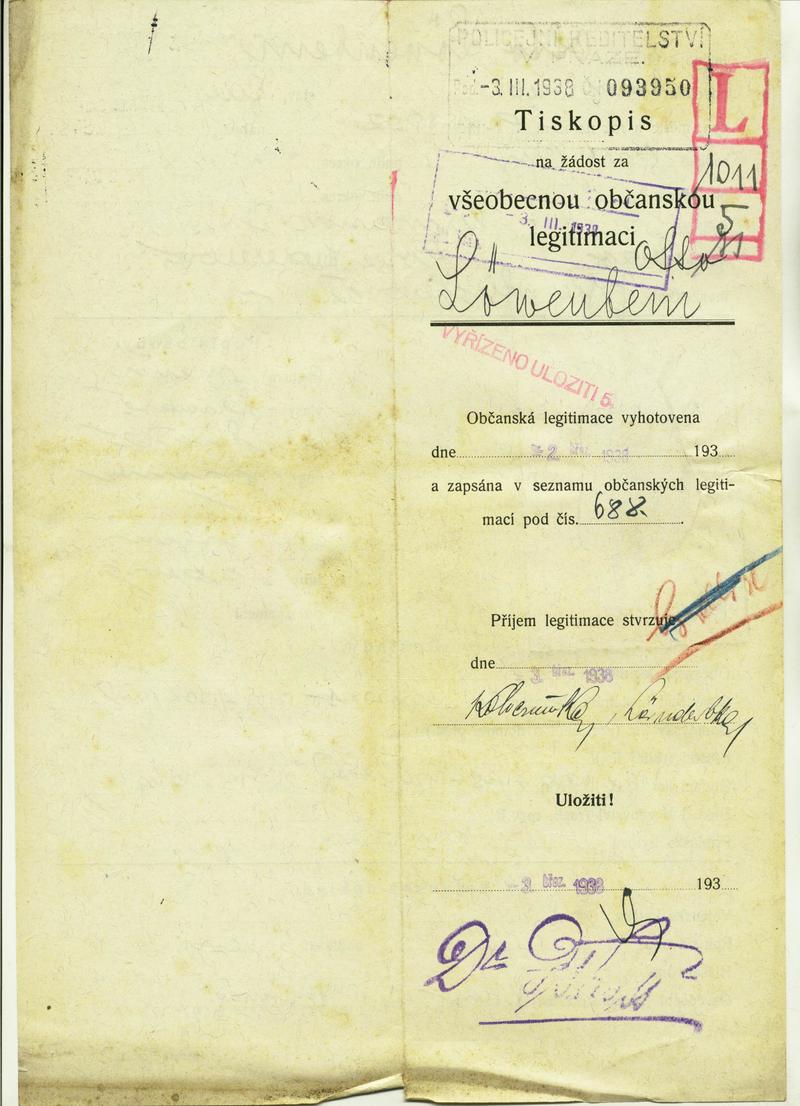 POLICEJNÍ ŘEDITELSTVÍ
V PRAZE.
-3. III. 1938 093950
L
Tiskopis
na žádost za
1011
všeobecnou občanskou
5
- 3. III. 1938
legitimaci
Otto
VYŘÍZENO ULOŽITI 5.
Občanská legitimace vyhotovena
dne - 2. břez. 1938 193
a zapsána v seznamu občanských legiti-
mací pod čís. 688.
Příjem legitimace stvrzuje
dne
3. břez. 1938
Uložiti!
- 3. břez. 1938 193
Dr